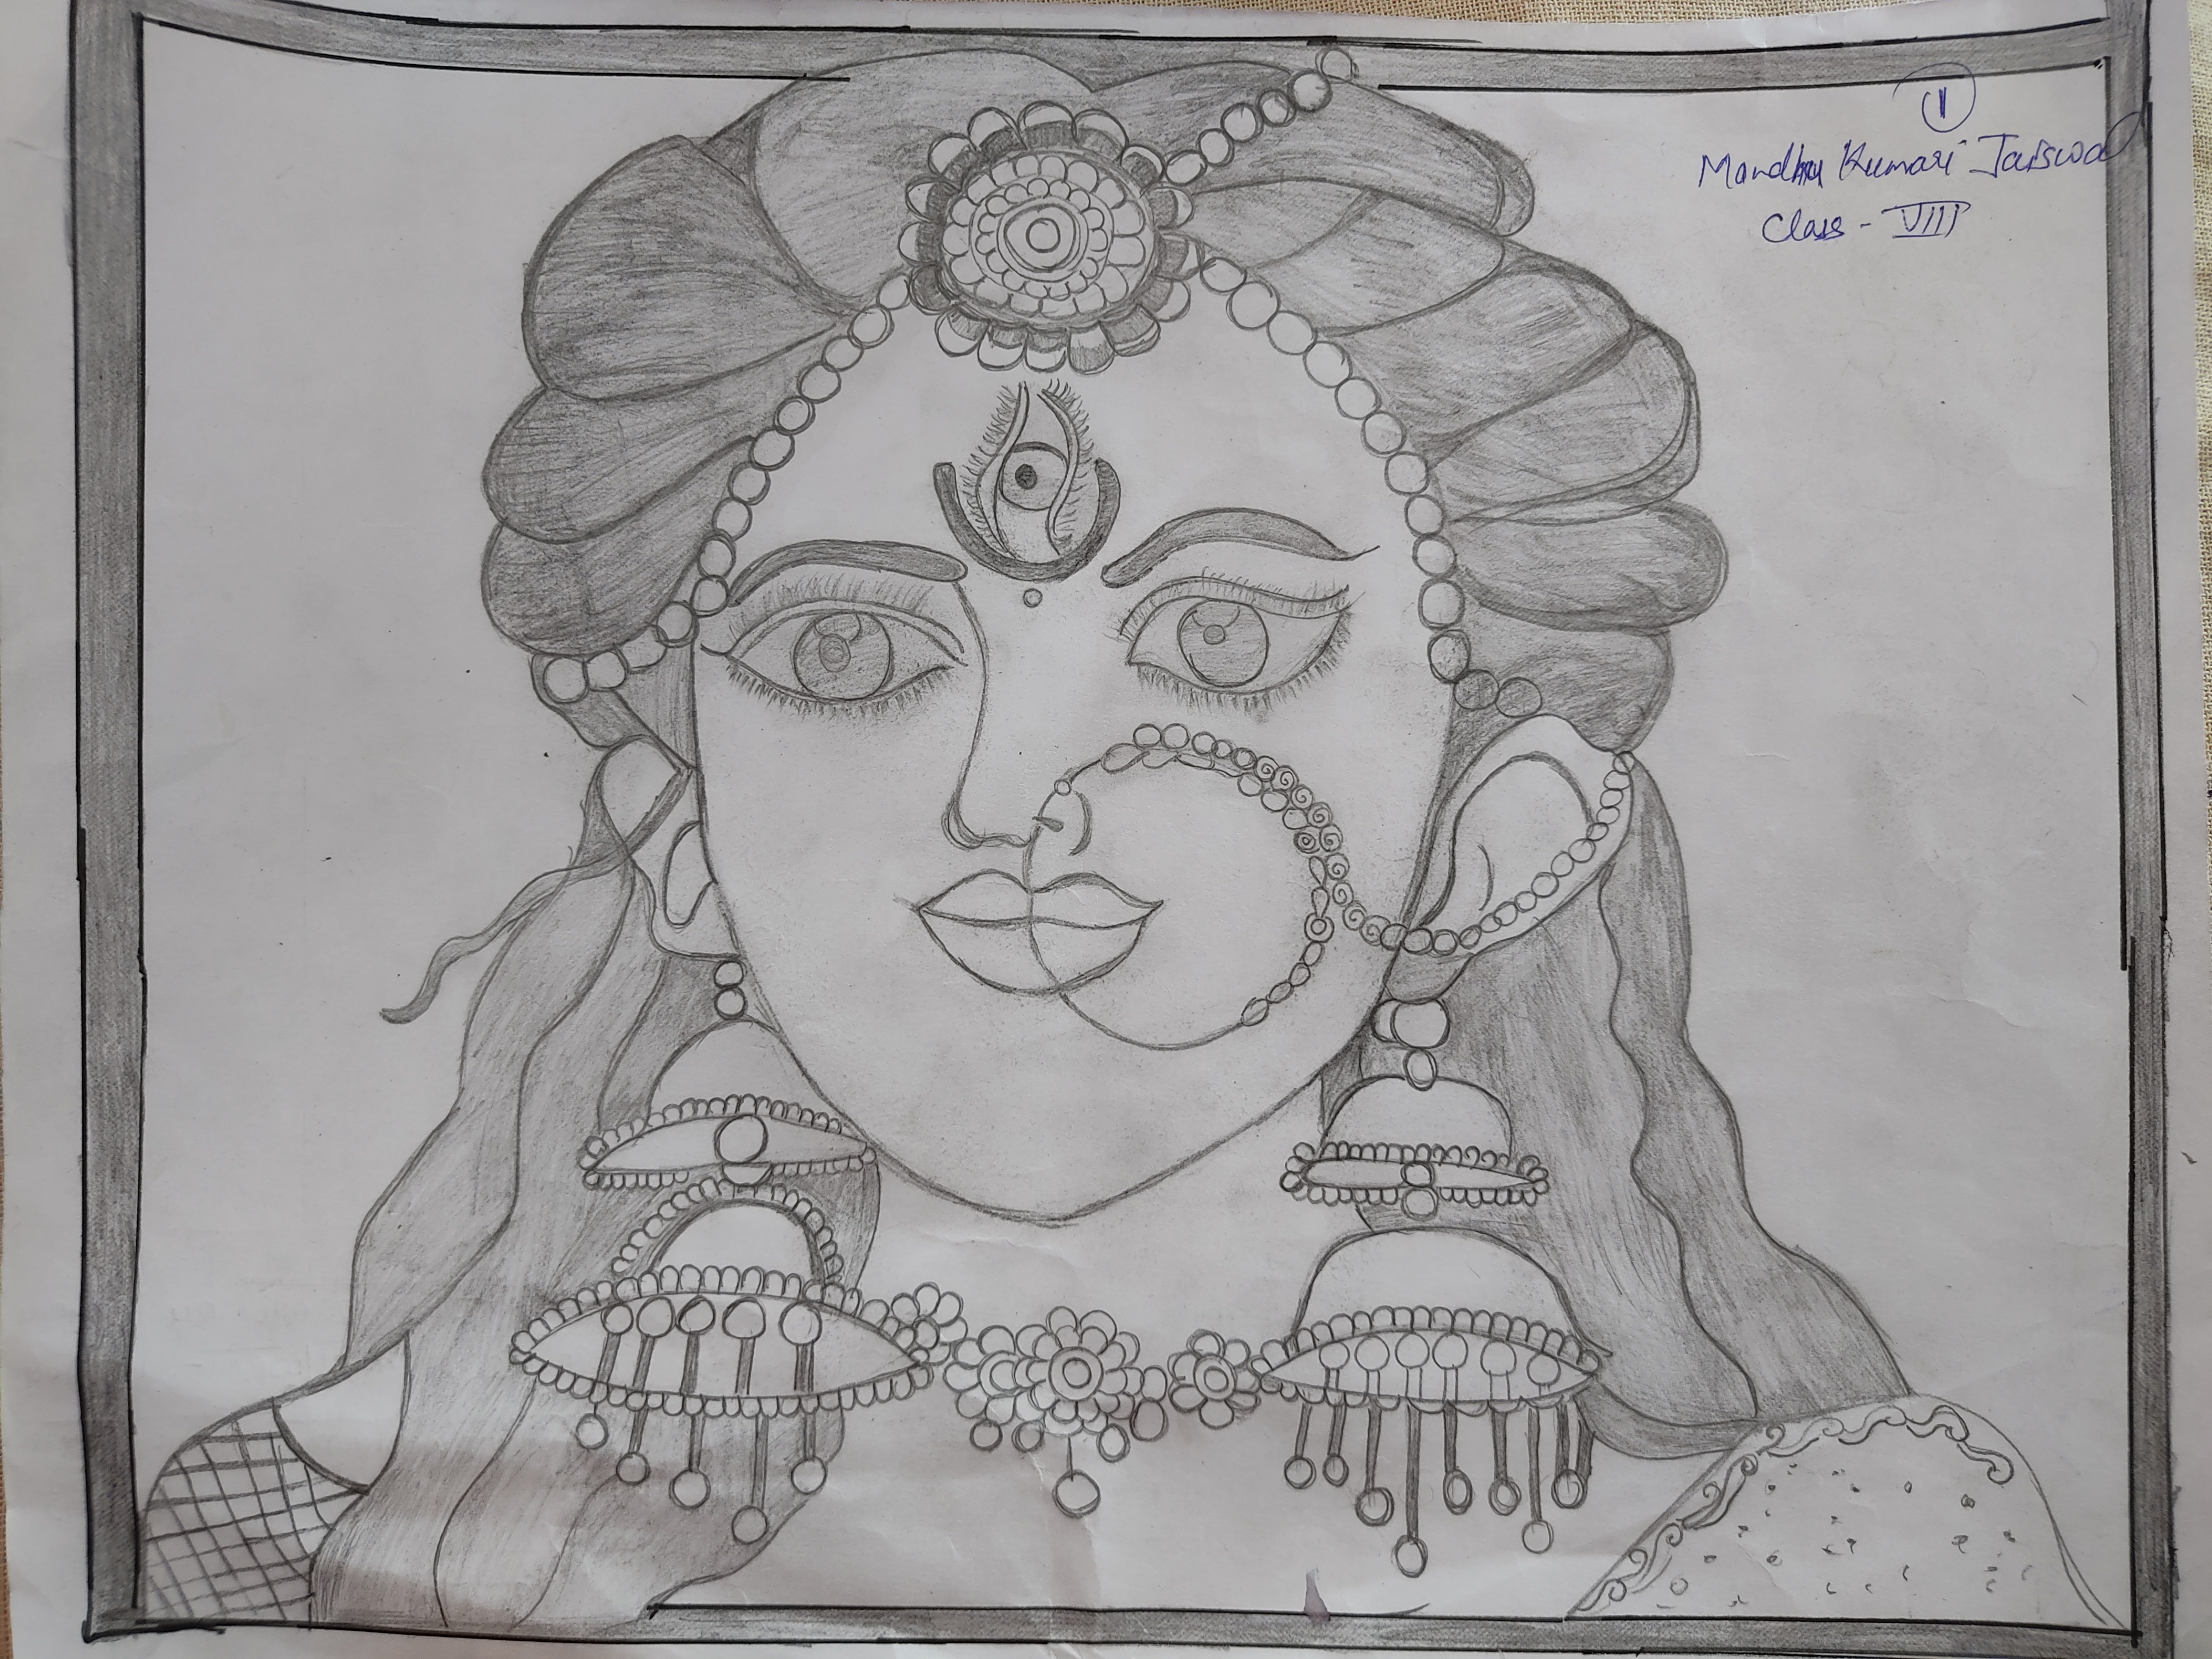 1
Mandhu Kumari Jaiswal
Class - VIII